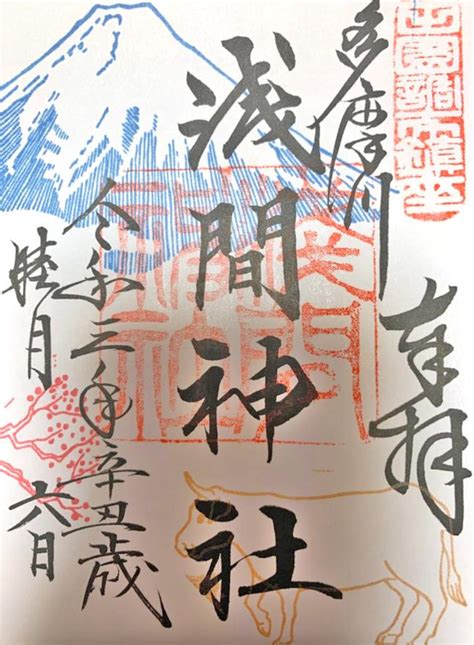 田園調布鎮座
奉拝
多摩川
浅間神社
令和三年辛丑歳
睦月
六日